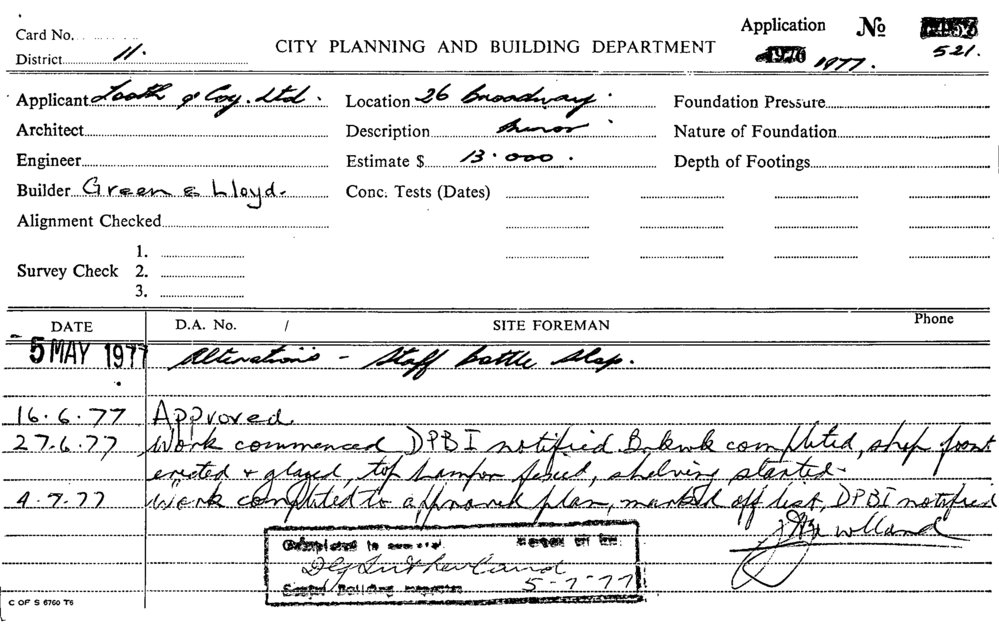 Card No.
CITY PLANNING AND BUILDING DEPARTMENT
Application No
District 11.
1976 1977. 521.
Applicant Tooth & Coy. Ltd.
Location 26 Broadway.
Foundation Pressure
Architect
Description Minor
Nature of Foundation
Engineer
Estimate $ 13.000.
Depth of Footings
Builder Green & Lloyd.
Conc. Tests (Dates)
Alignment Checked
Survey Check 1.
2.
3.
DATE D.A. No. / SITE FOREMAN Phone
5 MAY 1977 Alterations - Staff bottle shop.
16.6.77 Approved
27.6.77 Work commenced DPBI notified. Brkwk completed, shop front
erected & glazed, top hamper fixed, shelving started.
4.7.77 Work completed to approved plan, marked off list, DPBI notified
Completed to
D G Sutherland
Building Inspector 5-7-77
C OF S 6760 T6